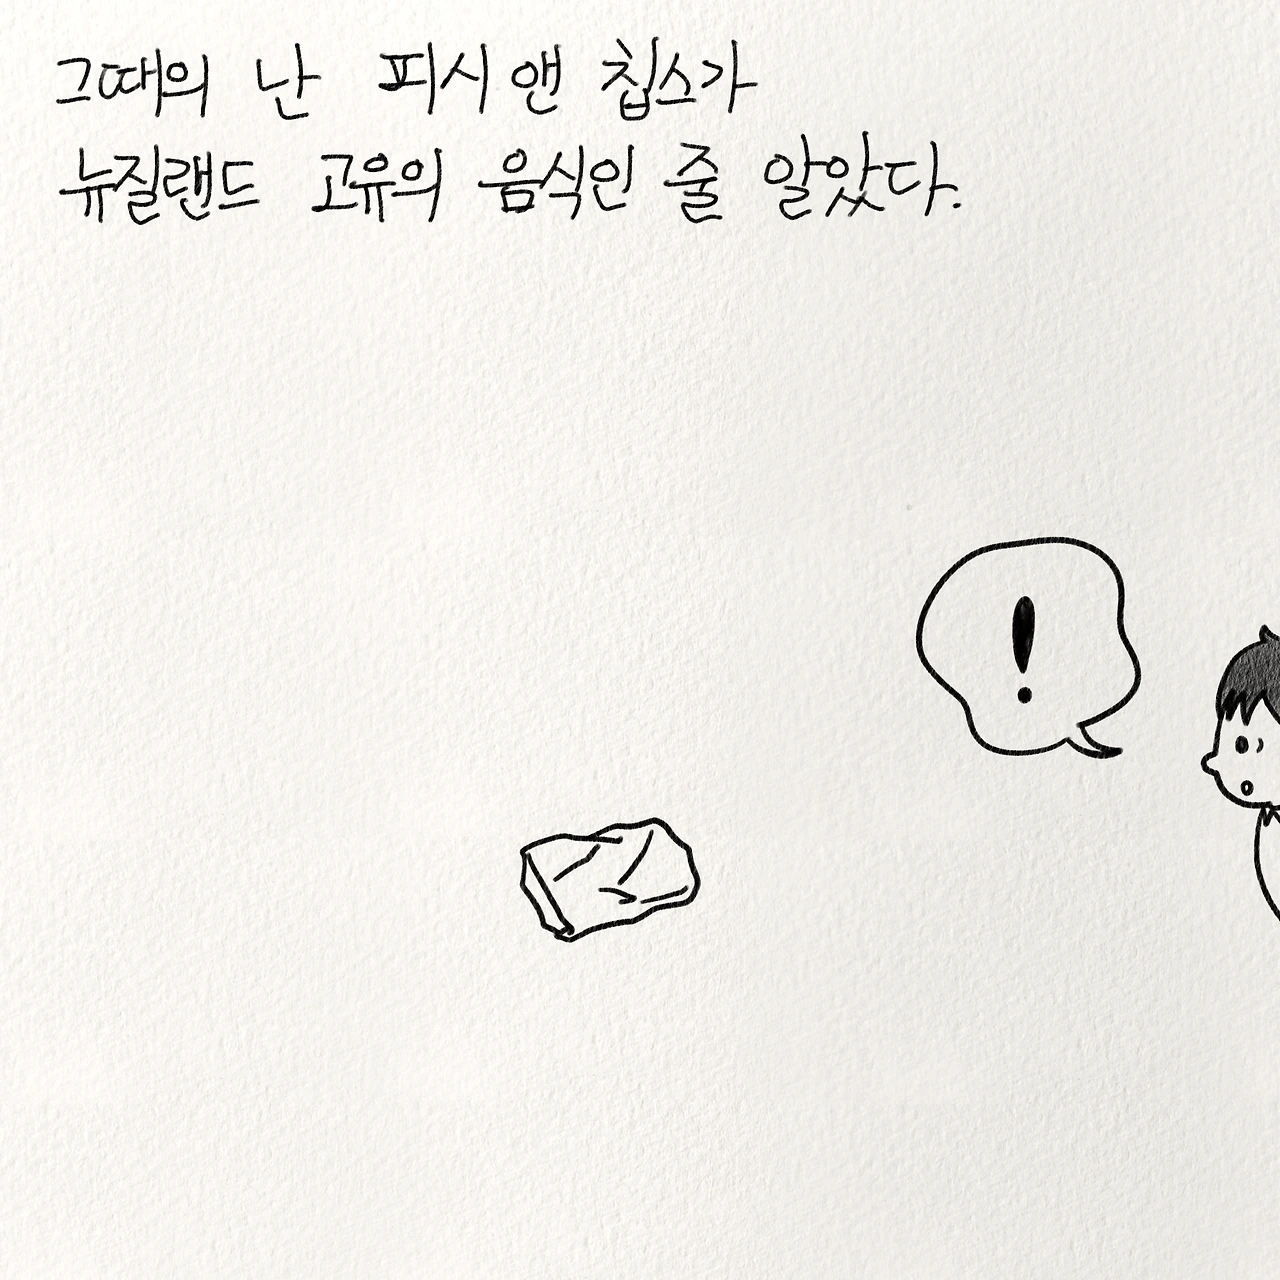 그때의 난 피시 앤 칩스가
뉴질랜드 고유의 음식인 줄 알았다.
!